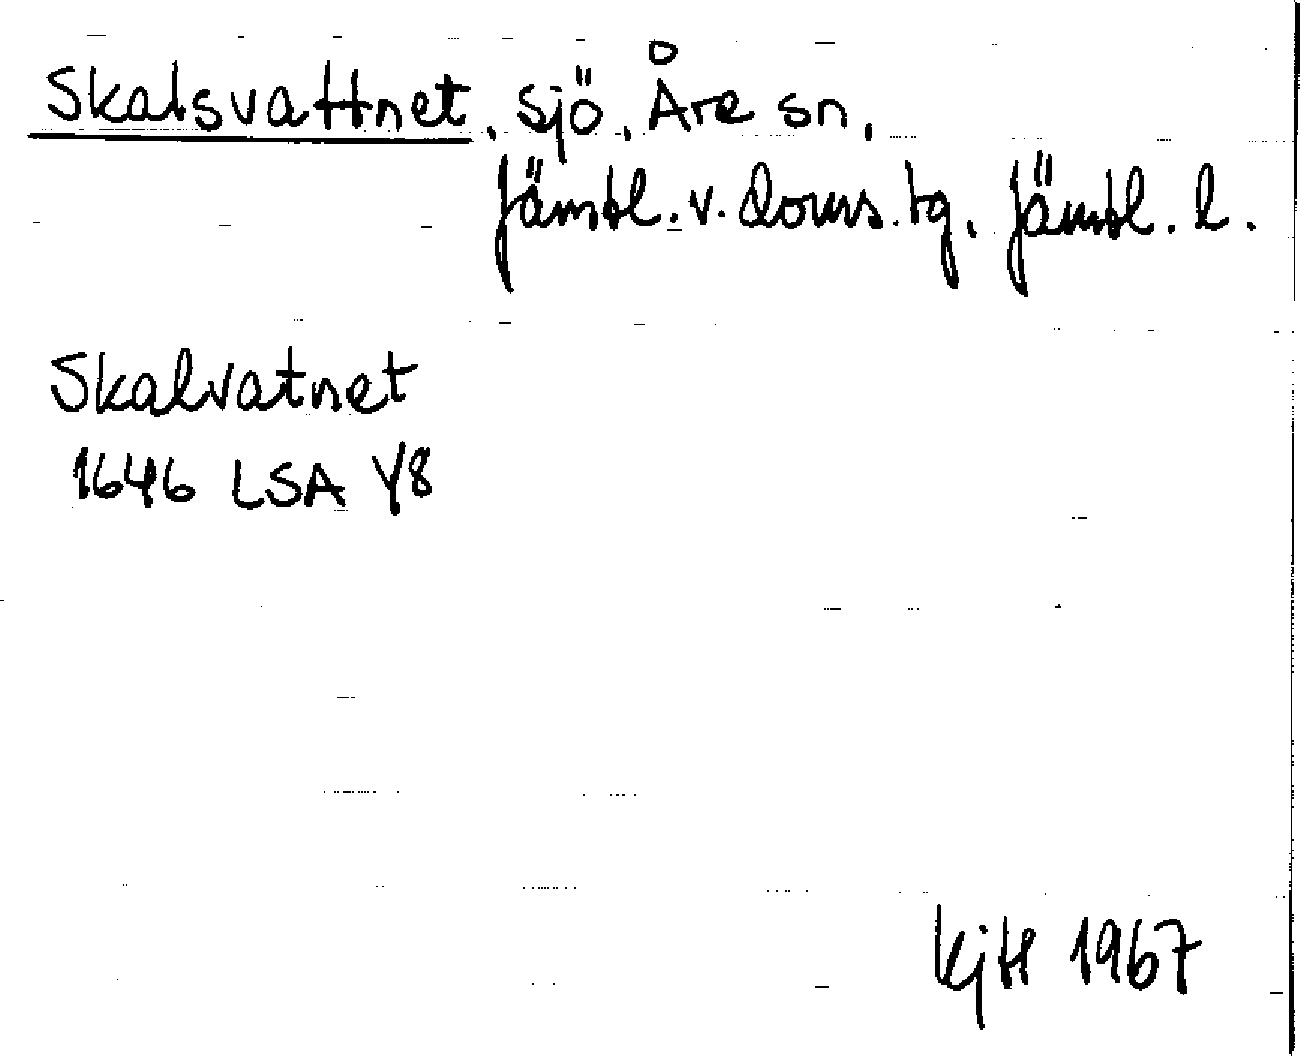 Skalsvattnet, sjö, Åre sn,
Jämtl. v. doms. tg, Jämtl. l.
Skalvatnet
1646 LSA Y8
KjH 1967